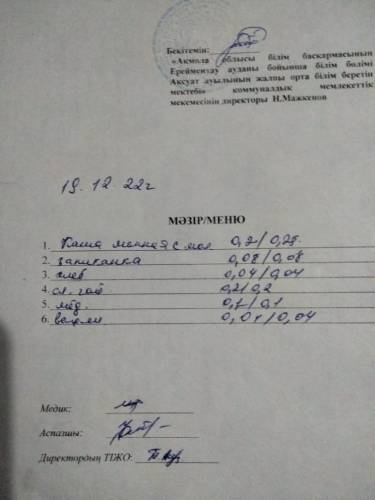 Бекітемін:
«Ақмола облысы білім басқармасының
Ерейментау ауданы бойынша білім бөлімі
Ақсуат ауылының жалпы орта білім беретін
мектебі» коммуналдық мемлекеттік
мекемесінің директоры Н.Мажкенов
19.12.22г
МӘЗІР/МЕНЮ
1. Каша манная с мол 0,2/0,25
2. запиканка 0,08/0,08
3. хлеб 0,04/0,04
4. сл. чай 0,2/0,2
5. мёд. 0,1/0,1
6. вафли 0,04/0,04
Медик:
Аспазшы:
Директордың ТІЖО: